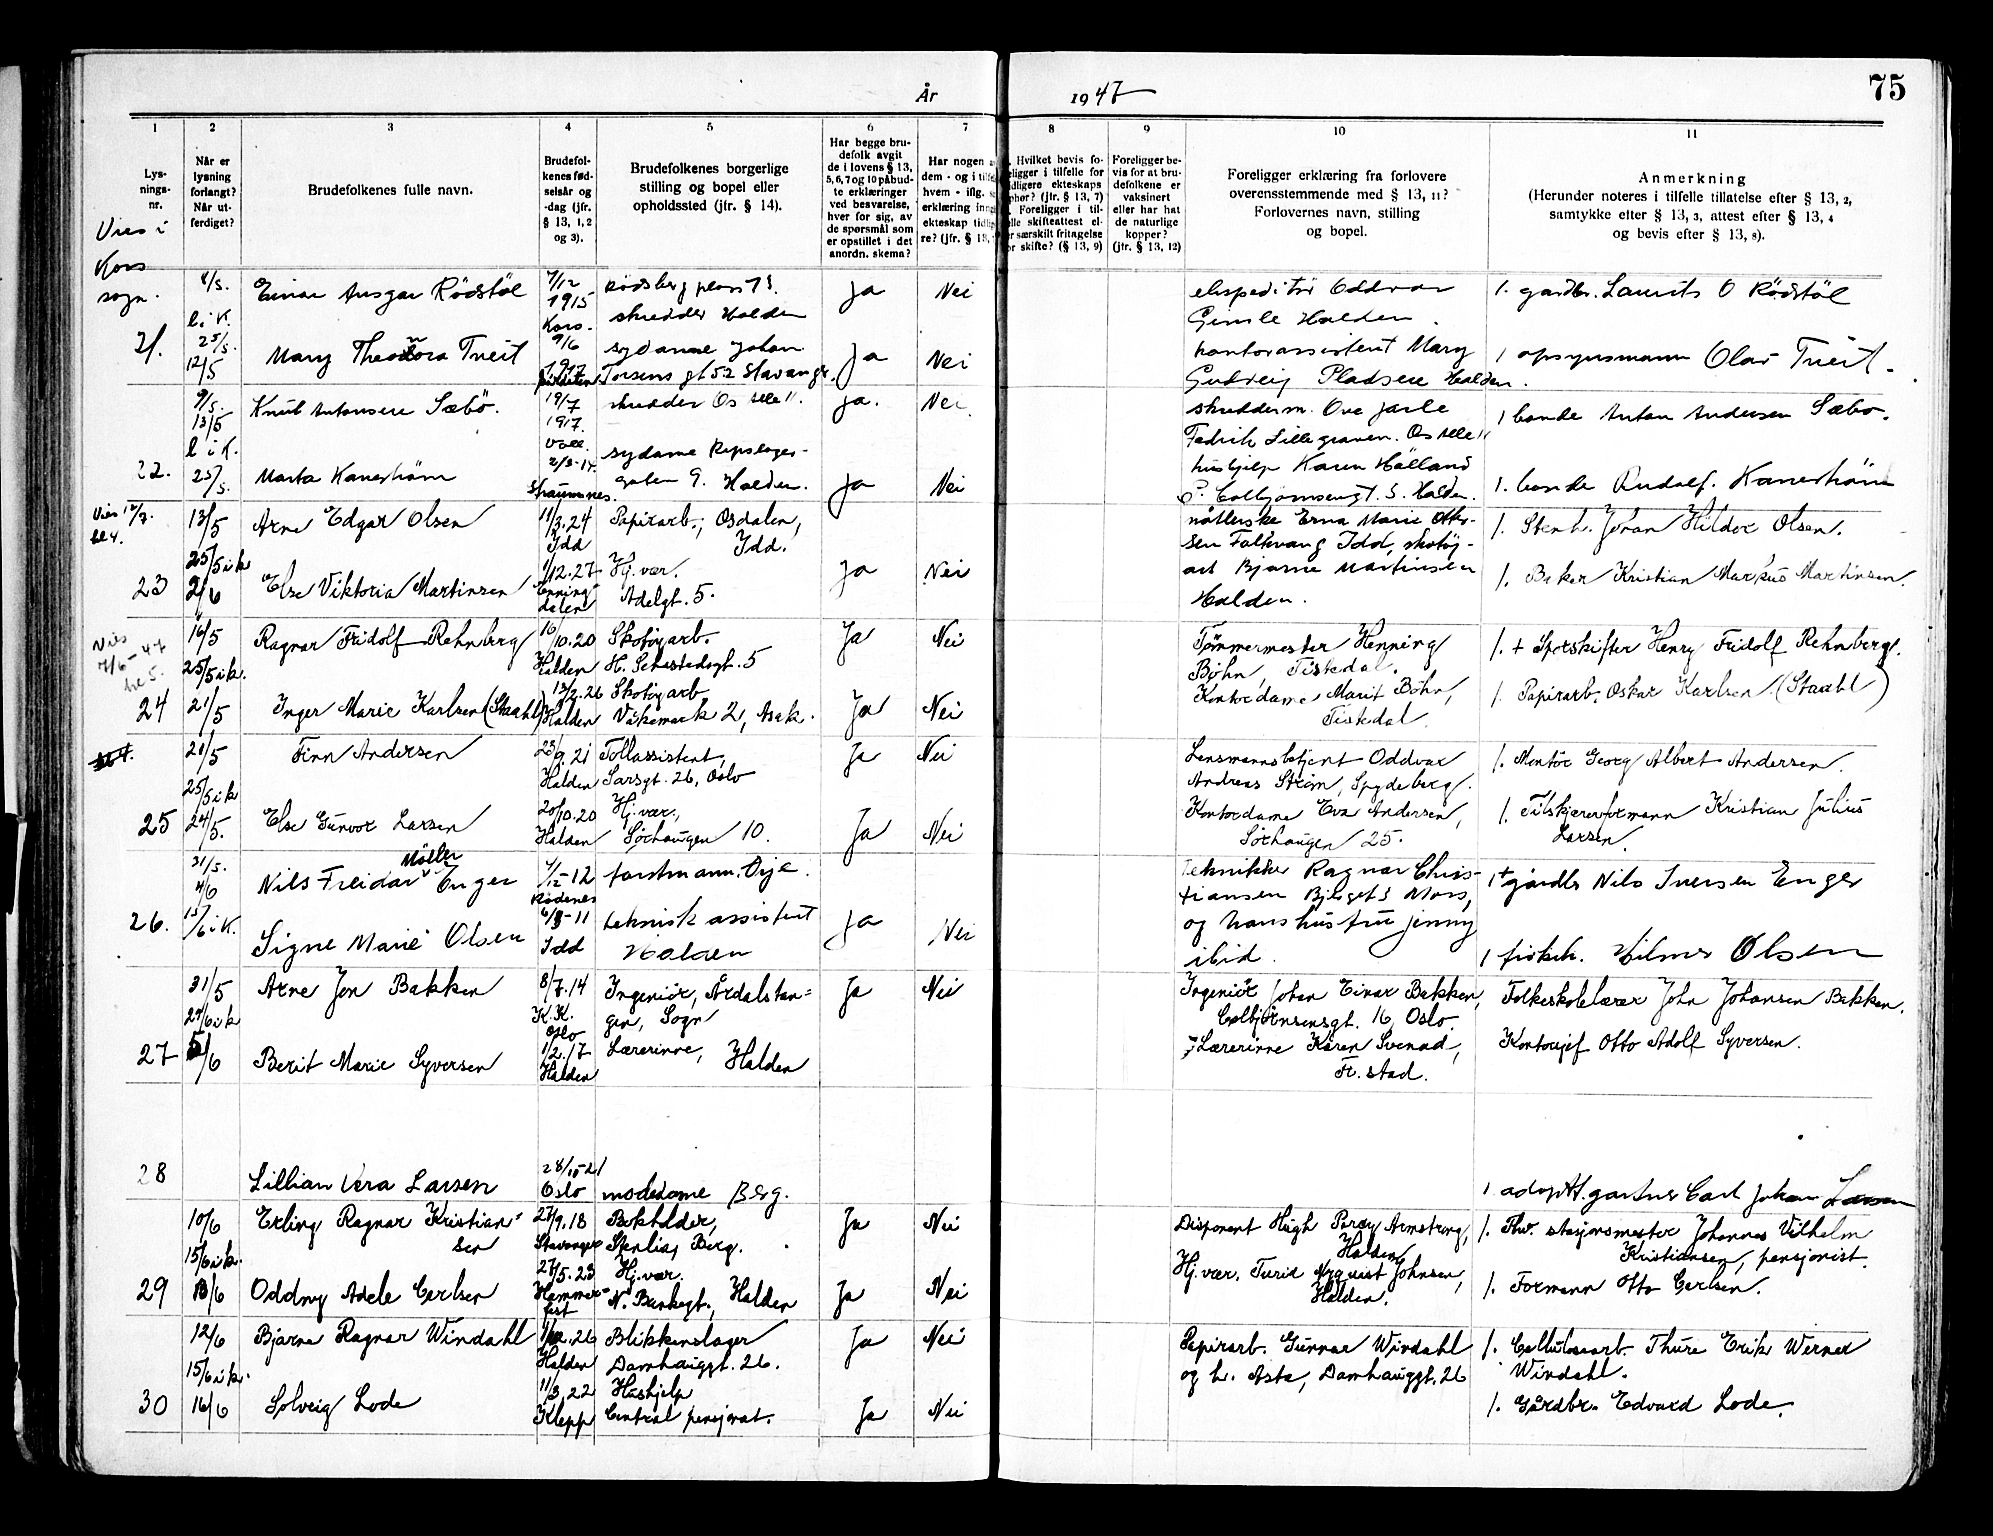 75
År 1947
1 2 3 4 5 6 7 8 9 10 11
Lys-
nings-
nr.
Når er
lysning
forlangt?
Når ut-
ferdiget?
Brudefolkenes fulle navn.
Brudefol-
kenes fød-
selsår og
-dag (jfr.
§ 13, 1, 2
og 3).
Brudefolkenes borgerlige
stilling og bopel eller
opholdssted (jfr. § 14).
Har begge bru-
defolk avgit
de i lovens § 13,
5, 6, 7 og 10 påbud-
te erklæringer
ved besvarelse,
hver for sig, av
de spørsmål som
er opstillet i det
anordn. skema?
Har nogen
dem - og i
hvem - iflg.
erklæring
ekteskap
re? (jfr. § 13,
Hvilket bevis fo-
religger i tilfelle for
tidligere ekteskaps
ophør? (jfr. § 13, 7)
Foreligger i til-
felle skifteattest el-
ler særskilt fritagelse
for skifte? (§ 13, 9)
Foreligger be-
vis for at bru-
defolkene er
vaksinert
eller har hat
de naturlige
kopper?
(jfr. § 13, 12)
Foreligger erklæring fra forlovere
overensstemmende med § 13, 11?
Forlovernes navn, stilling
og bopel.
Anmerkning
(Herunder noteres i tilfelle tillatelse efter § 13, 2,
samtykke efter § 13, 3, attest efter § 13, 4
og bevis efter § 13, 8).
Vies i
Kors
sogn.
21.
l i K.
25/5.
12/5
Einar Ansgar Rödstöl
7/12
1915
Kors-
skredder Halden
Ja Nei
ekspeditör Oddvar
Gimle Halden.
1. gardbr. Laurits O Rödstöl
Mary Theodora Tveit
9/6
1917
sydame Johan
Torsens gt 52 Stavanger.
Ja Nei
kontorassistent Mary
Gudveig Pladsen Halden.
1 opsynsmann Olav Tveit.
22.
9/5.
13/5
l i K.
25/5.
Knut Antonsen Sæbö.
19/7
1917.
Voll
skredder Os alle 11.
Ja. Nei
skredderm. Ove Jarle
Fredrik Lillegraven. Os alle 11
1 bonde Anton Andersen Sæbo.
Marta Kanestrøm
2/3-14.
Straumsnes.
sydame Repslager-
gaten 9. Halden.
Ja Nei
hushjelp Karen Hölland
P. Colbjørnsengt. 5. Halden.
1. bonde Rudolf. Kanestrøm
Vies 12/7.
kl 4.
23
13/5
25/5 i k
2/6
Arne Edgar Olsen
11/3.24
Idd
Papirarb., Osdalen,
Idd.
nåtlerske Erna Marie Otte-
sen Folkvang Idd, skotöj-
arb Bjarne Martinsen
Halden.
1. Stenh. Johan Hildor Olsen.
Else Viktoria Martinsen
1/12.27
Enning-
dalen
Hj. vær.
Adelgt. 5.
Ja Nei
1. Baker Kristian Markus Martinsen.
Vies
7/6-47
kl 5.
24
16/5
25/5 i k.
21/5
Ragnar Fridolf Rehnberg
16/10.20
Halden
Skotöyarb.
H. Sehestedsgt. 5
Ja Nei
Tømmermester Henning
Bøhn, Tistedal.
1. + Sporskifter Henry Fridolf Rehnberg.
Inger Marie Karlsen (Staahl)
13/2.26
Halden
Skotöyarb
Våkemark 2, Asak.
Ja Nei
Kontordame Marit Bøhn,
Tistedal.
1. Papirarb. Oskar Karlsen (Staahl)
25
21/5
25/5 i k
24/5.
Finn Andersen
23/9.21
Halden
Tollassistent,
Sarsgt. 26, Oslo
Ja Nei
Lensmannsbetjent Oddvar
Andreas Strøm, Spydeberg.
1. Montör Georg Albert Andersen.
Else Gunvor Larsen
20/10.20
Halden
Hj. vær,
Sörhaugen 10.
Ja Nei
Kontordame Eva Andersen,
Sörhaugen 25.
1. Tilskjererformann Kristian Julius
Larsen.
26.
31/5.
4/6
15/6 i K.
Nils Freidar Möller Enger
7/12-12
Rødenes
forstmann. Ørje.
teknikker Ragnar Chris-
tiansen Bjilget 5 Moss,
og hans hustru Jenny
ibid.
1 + gårdbr Nils Iversen Enger
Signe Marie Olsen
6/8-11
Idd
teknisk assistent
Halden
Ja Nei
1 fiskeh. Hilmer Olsen
27
31/5
29/6 i k
5/6
Arne Jon Bakken
8/7.14
K.K.
Oslo
Ingeniör, Årdalstan=
gen, Sogn
Ja Nei
Ingeniör Johan Einar Bakken,
Colbjörnsensgt. 16, Oslo.
Folkeskolelærer John Johansen Bakken.
Berit Marie Syversen
1/2.17
Halden
Lærerinne, Halden
Lærerinne Karen Svenad,
Fr. stad.
Kontorsjef Otto Adolf Syversen.
28
Lillian Vera Larsen
28/10-21
Oslo
motedame Berg.
1 adoptf. gartner Carl Johan Larsen
29
10/6
15/6 i k.
13/6
Erling Ragnar Kristian=
sen
27/9.18
Stavanger
Bokholder,
Stenlia, Berg.
Ja Nei
Disponent Hugh Percy Armstrong,
Halden
1. Fhv. stasjonsmester Johannes Vilhelm
Kristiansen, pensjonist.
Oddny Adele Carlsen
27/5.23
Hammer=
fest
Hj. vær.
N. Bankegt., Halden
Ja Nei
Hj. vær. Turid Nyquist Johnsen,
Halden.
1. Formann Otto Carlsen.
30
12/6
15/6 i k.
16/6
Bjarne Ragnar Windahl
Halden
Blikkenslager
Damhauggt. 26.
Ja Nei
Papirarb. Gunnar Windahl
og h. Asta, Damhauggt. 26
1. Cellulosearb. Thure Erik Werner
Windahl.
Solveig Lode
11/3.22
Klepp
Hushjelp
Central pensjonat.
Ja Nei
1. Gårdbr. Edvard Lode.